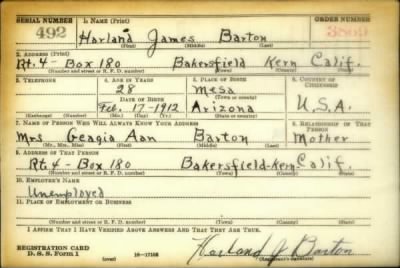 SERIAL NUMBER 1. NAME (Print) ORDER NUMBER
492 Harland James Barton 3809
(First) (Middle) (Last)
2. ADDRESS (Print)
Rt. 4 - Box 180 Bakersfield Kern Calif.
(Number and street or R. F. D. number) (Town) (County) (State)
3. TELEPHONE 4. AGE IN YEARS 5. PLACE OF BIRTH 6. COUNTRY OF CITIZENSHIP
28 Mesa
DATE OF BIRTH (Town or county)
Feb. 17-1912 Arizona U.S.A.
(Exchange) (Number) (Mo.) (Day) (Yr.) (State or country)
7. NAME OF PERSON WHO WILL ALWAYS KNOW YOUR ADDRESS 8. RELATIONSHIP OF THAT PERSON
Mrs Geagia Aan Barton Mother
(Mr., Mrs., Miss) (First) (Middle) (Last)
9. ADDRESS OF THAT PERSON
Rt. 4 - Box 180 Bakersfield-Kern Calif.
(Number and street or R. F. D. number) (Town) (County) (State)
10. EMPLOYER'S NAME
Unemployed
11. PLACE OF EMPLOYMENT OR BUSINESS
(Number and street or R. F. D. number) (Town) (County) (State)
I AFFIRM THAT I HAVE VERIFIED ABOVE ANSWERS AND THAT THEY ARE TRUE.
REGISTRATION CARD
D. S. S. Form 1 (over) 16-17105 Harland J Barton
(Registrant's signature)